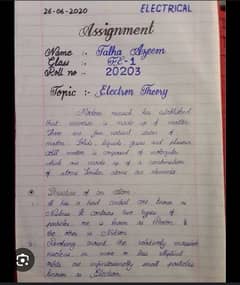 26-06-2020 ELECTRICAL
Assignment
Name :- Talha Azeem
Class :- FE-1
Roll no :- 20203
Topic :- Electron Theory
Modern research has established
that universe is made up of matter.
There are four natural states of
matter. Solids, liquids, gases and plasma.
matter is composed of molecules
which are made up of a combination
of atoms.
Structure of an atom
It has a hard central core known as
Nucleus. It contains two types of
particles, one is known as Proton &
the other is Neutron
Revolving around the relatively massive
nucleus, in more or less elliptical
orbits are infinitesimally small particles
known as Electron